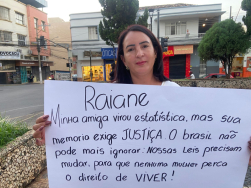 Raiane
Minha amiga virou estatística, mas sua
memoria exige JUSTIÇA. O brasil não
pode mais ignorar: Nossas Leis precisam
mudar, para que nenhuma mulher perca
o direito de VIVER!